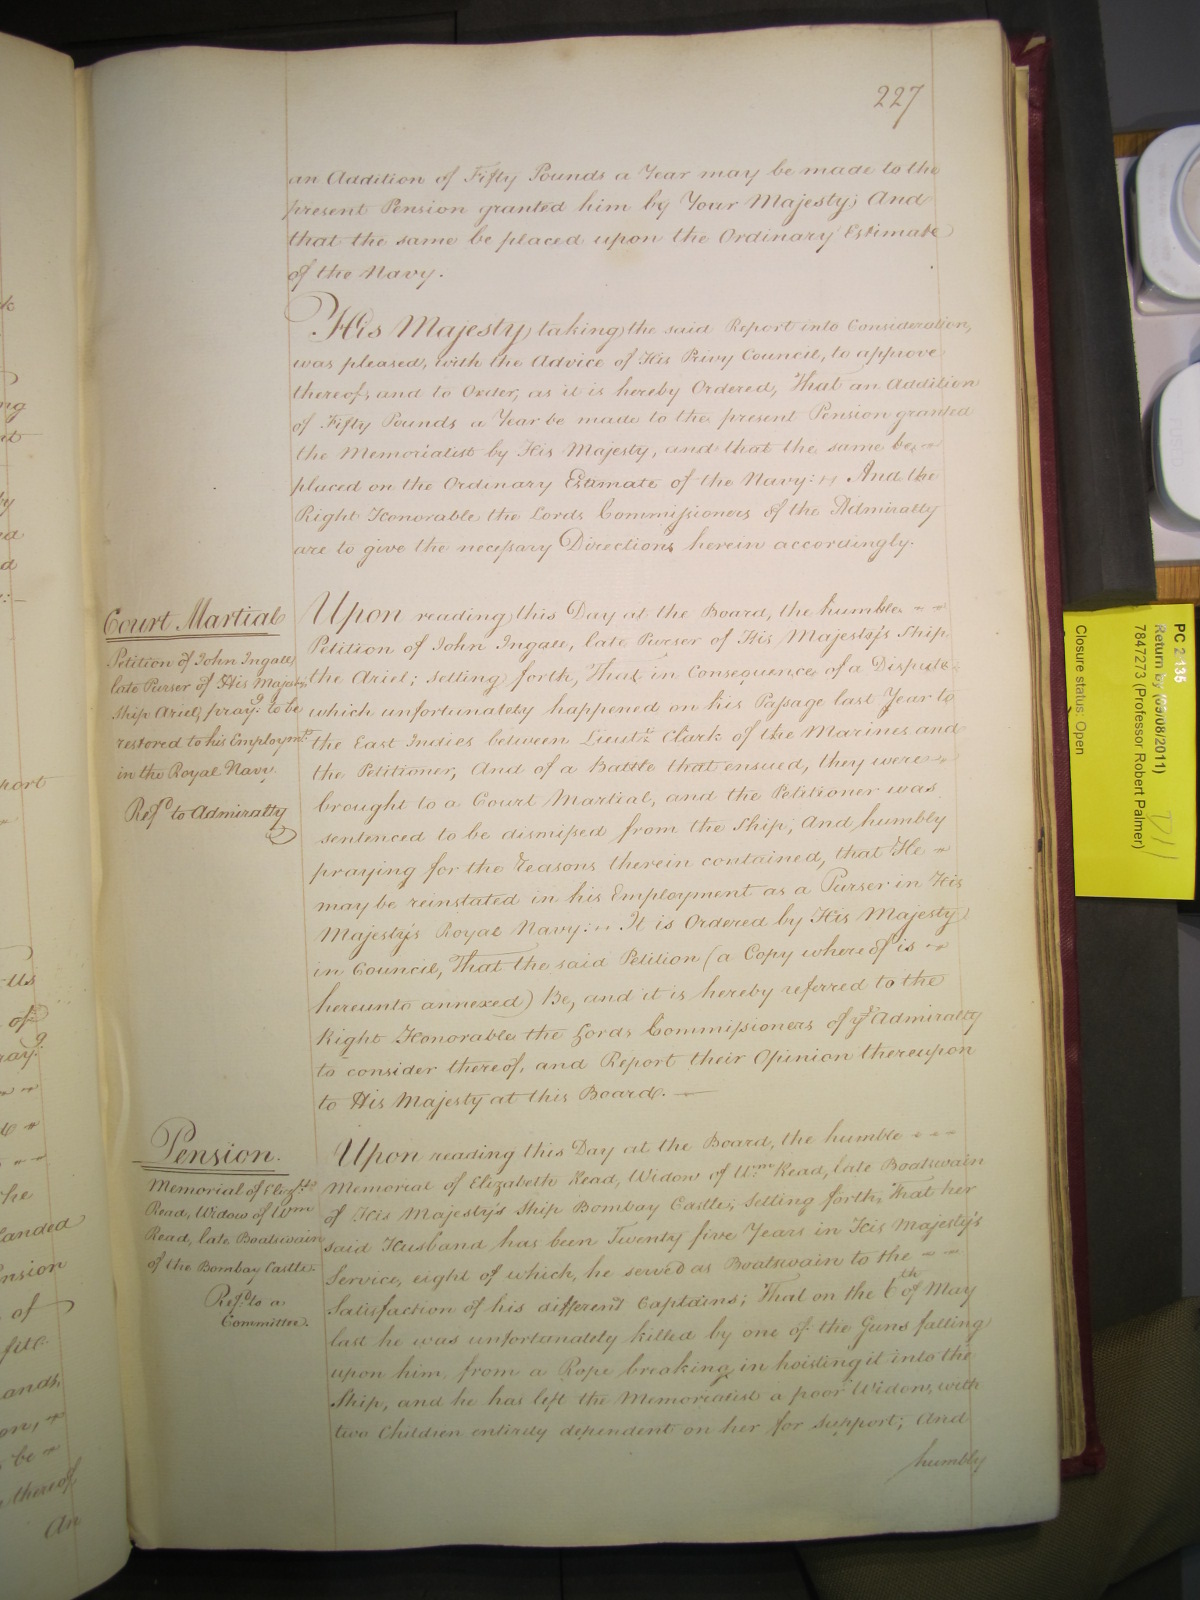 227
an Addition of Fifty Pounds a Year may be made to the
present Pension granted him by Your Majesty; And
that the same be placed upon the Ordinary Estimate
of the Navy.
His Majesty, taking the said Report into Consideration,
was pleased, with the Advice of His Privy Council, to approve
thereof, and to Order, as it is hereby Ordered, That an Addition
of Fifty Pounds a Year be made to the present Pension granted
the Memorialist by His Majesty, and that the same be
placed on the Ordinary Estimate of the Navy: And the
Right Honorable the Lords Commissioners of the Admiralty
are to give the necessary Directions herein accordingly.
Court Martial
Petition of John Ingale,
late Purser of His Majestys
Ship Ariel, pray.g to be
restored to his Employm.t
in the Royal Navy.
Ref.d to Admiralty
Upon reading this Day at the Board, the humble
Petition of John Ingale, late Purser of His Majesty's Ship
the Ariel; setting forth, That in Consequence of a Dispute
which unfortunately happened on his Passage last Year to
the East Indies between Lieut.t Clark of the Marines and
the Petitioner, And of a Battle that ensued, they were
brought to a Court Martial, and the Petitioner was
sentenced to be dismissed from the Ship; And humbly
praying for the Reasons therein contained, that He
may be reinstated in his Employment as a Purser in His
Majesty's Royal Navy: It is Ordered by His Majesty
in Council, That the said Petition (a Copy whereof is
hereunto annexed) Be, and it is hereby referred to the
Right Honorable the Lords Commissioners of y.e Admiralty
to consider thereof, and Report their Opinion thereupon
to His Majesty at this Board.
Pension.
Memorial of Eliz.th
Read, Widow of Wm
Read, late Boatswain
of the Bombay Castle.
Ref.d to a
Committee.
Upon reading this Day at the Board, the humble
Memorial of Elizabeth Read, Widow of W.m Read, late Boatswain
of His Majesty's Ship Bombay Castle; setting forth, That her
said Husband has been Twenty five Years in His Majesty's
Service, eight of which, he served as Boatswain to the
Satisfaction of his different Captains; That on the 6th of May
last he was unfortunately killed by one of the Guns falling
upon him, from a Rope breaking in hoisting it into the
Ship, and he has left the Memorialist a poor Widow, with
two Children entirely dependent on her for support; And
humbly
PC 2 135
Return by (09/08/2011)
7847273 (Professor Robert Palmer)
Closure status: Open